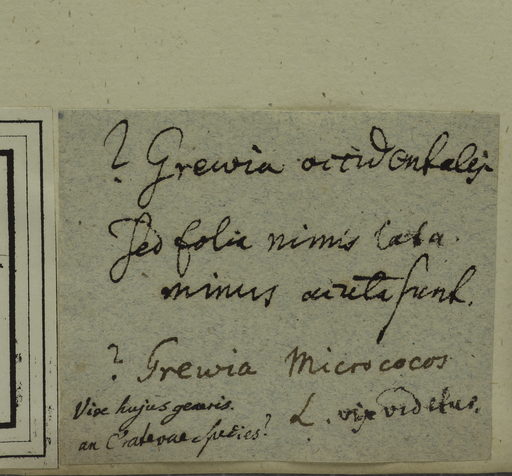 ? Grewia occidentalis
Sed folia nimis lata
minus acuta sunt.
? Grewia Micrococos
L. vix videtur.
Vix hujus generis.
an Cratevae species?